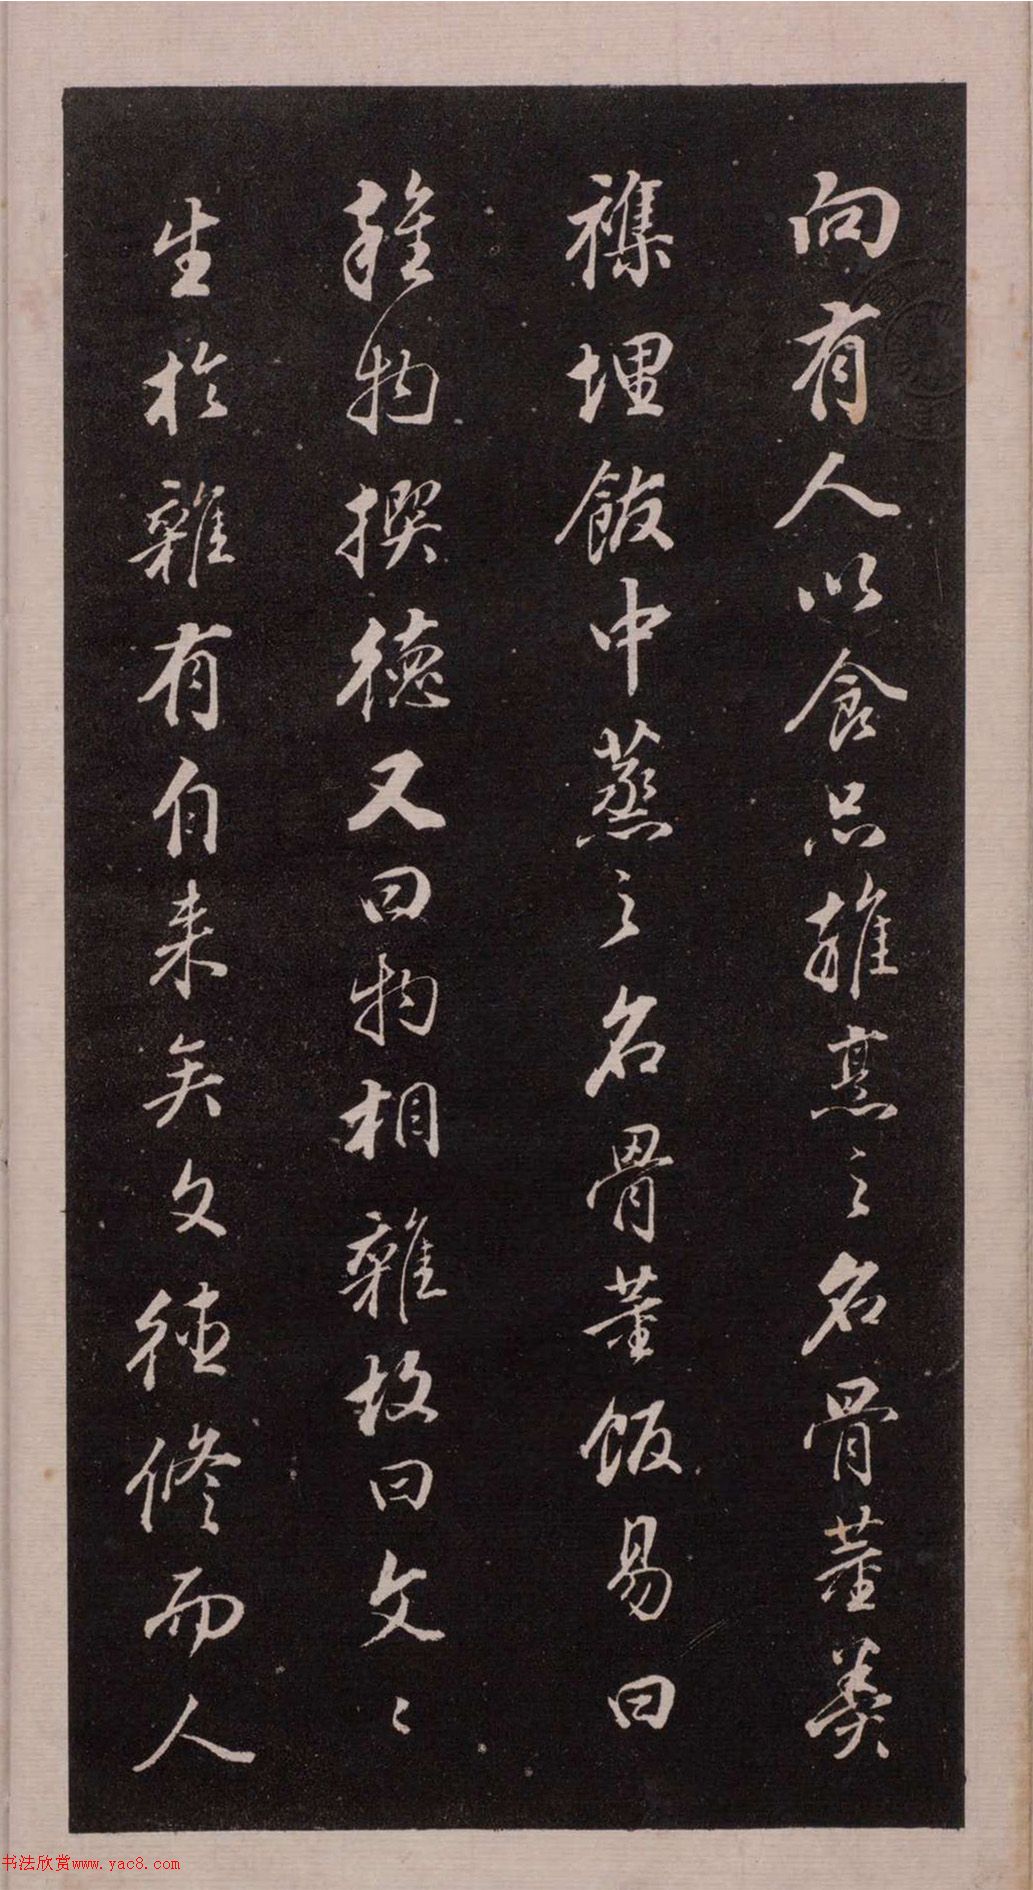 向有人以食品雜烹之名骨董羹
襍埋飯中蒸之名骨董飯易曰
雜物撰德又曰物相雜故曰文〻
生於雜有自来矣文德修而人
书法欣赏www.yac8.com